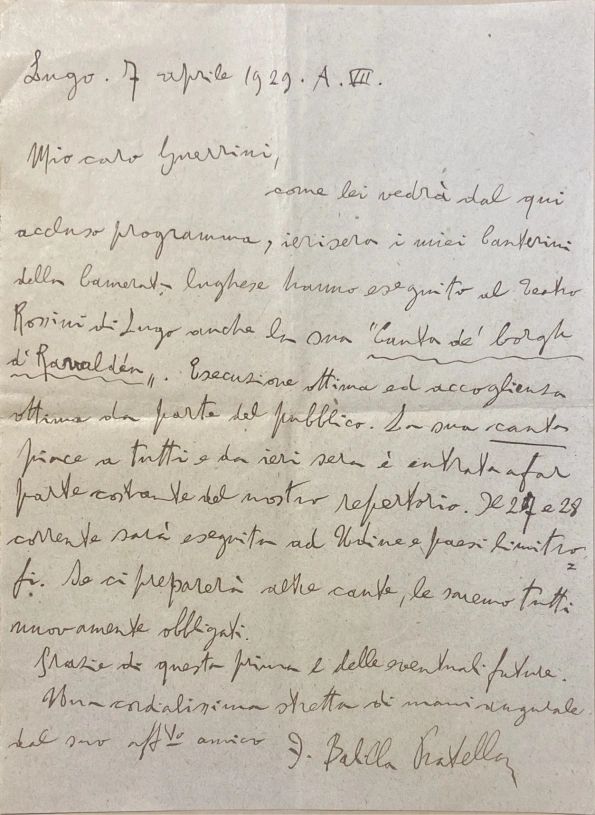 Lugo. 7 aprile 1929. A. VII.
Mio caro Guerrini,
come lei vedrà dal qui
accluso programma, ierisera i miei Canterini
della Camerata lughese hanno eseguito al Teatro
Rossini di Lugo anche la sua "Canta de' borgh
d' Ravaldén". Esecuzione ottima ed accoglienza
ottima da parte del pubblico. La sua canta
piace a tutti e da ieri sera è entrata a far
parte costante del nostro repertorio. Il 27 e 28
corrente sarà eseguita ad Udine e paesi limitro=
fi. Se ci preparerà altre cante, le saremo tutti
nuovamente obbligati.
Grazie di questa prima e delle eventuali future.
Una cordialissima stretta di mani augurale
dal suo affto amico F. Balilla Pratella